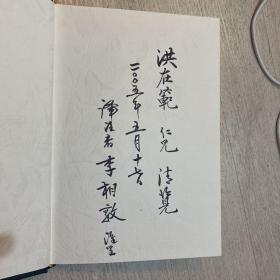 洪在範 仁兄 清覽
二〇〇五年五月十六日
譯注者 李相敦 謹呈